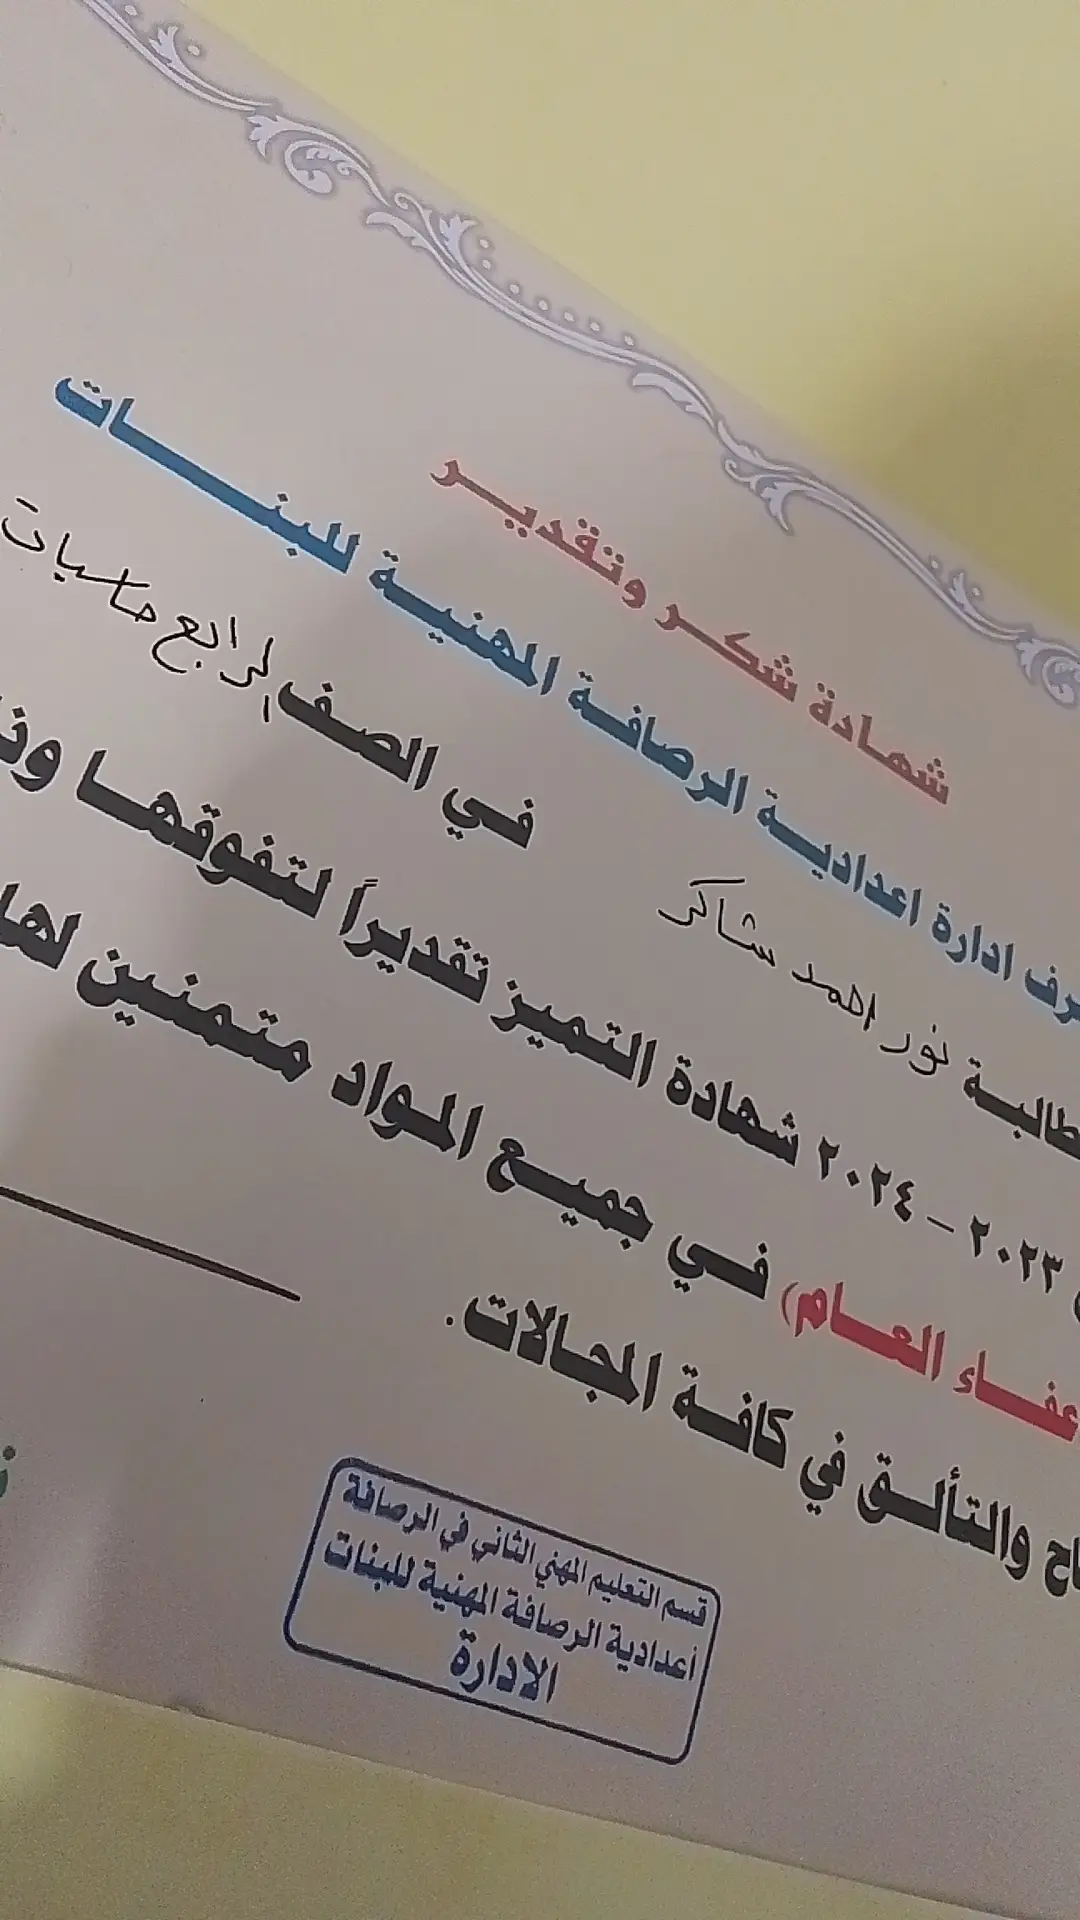 شهادة شكر وتقدير
ادارة اعدادية الرصافة المهنية للبنات
نور احمد شاكر في الصف الرابع حاسبات
٢٠٢٣ - ٢٠٢٤ شهادة التميز تقديراً لتفوقها
العام) في جميع المواد متمنين لها
والتألق في كافة المجالات.
قسم التعليم المهني الثاني في الرصافة
أعدادية الرصافة المهنية للبنات
الادارة